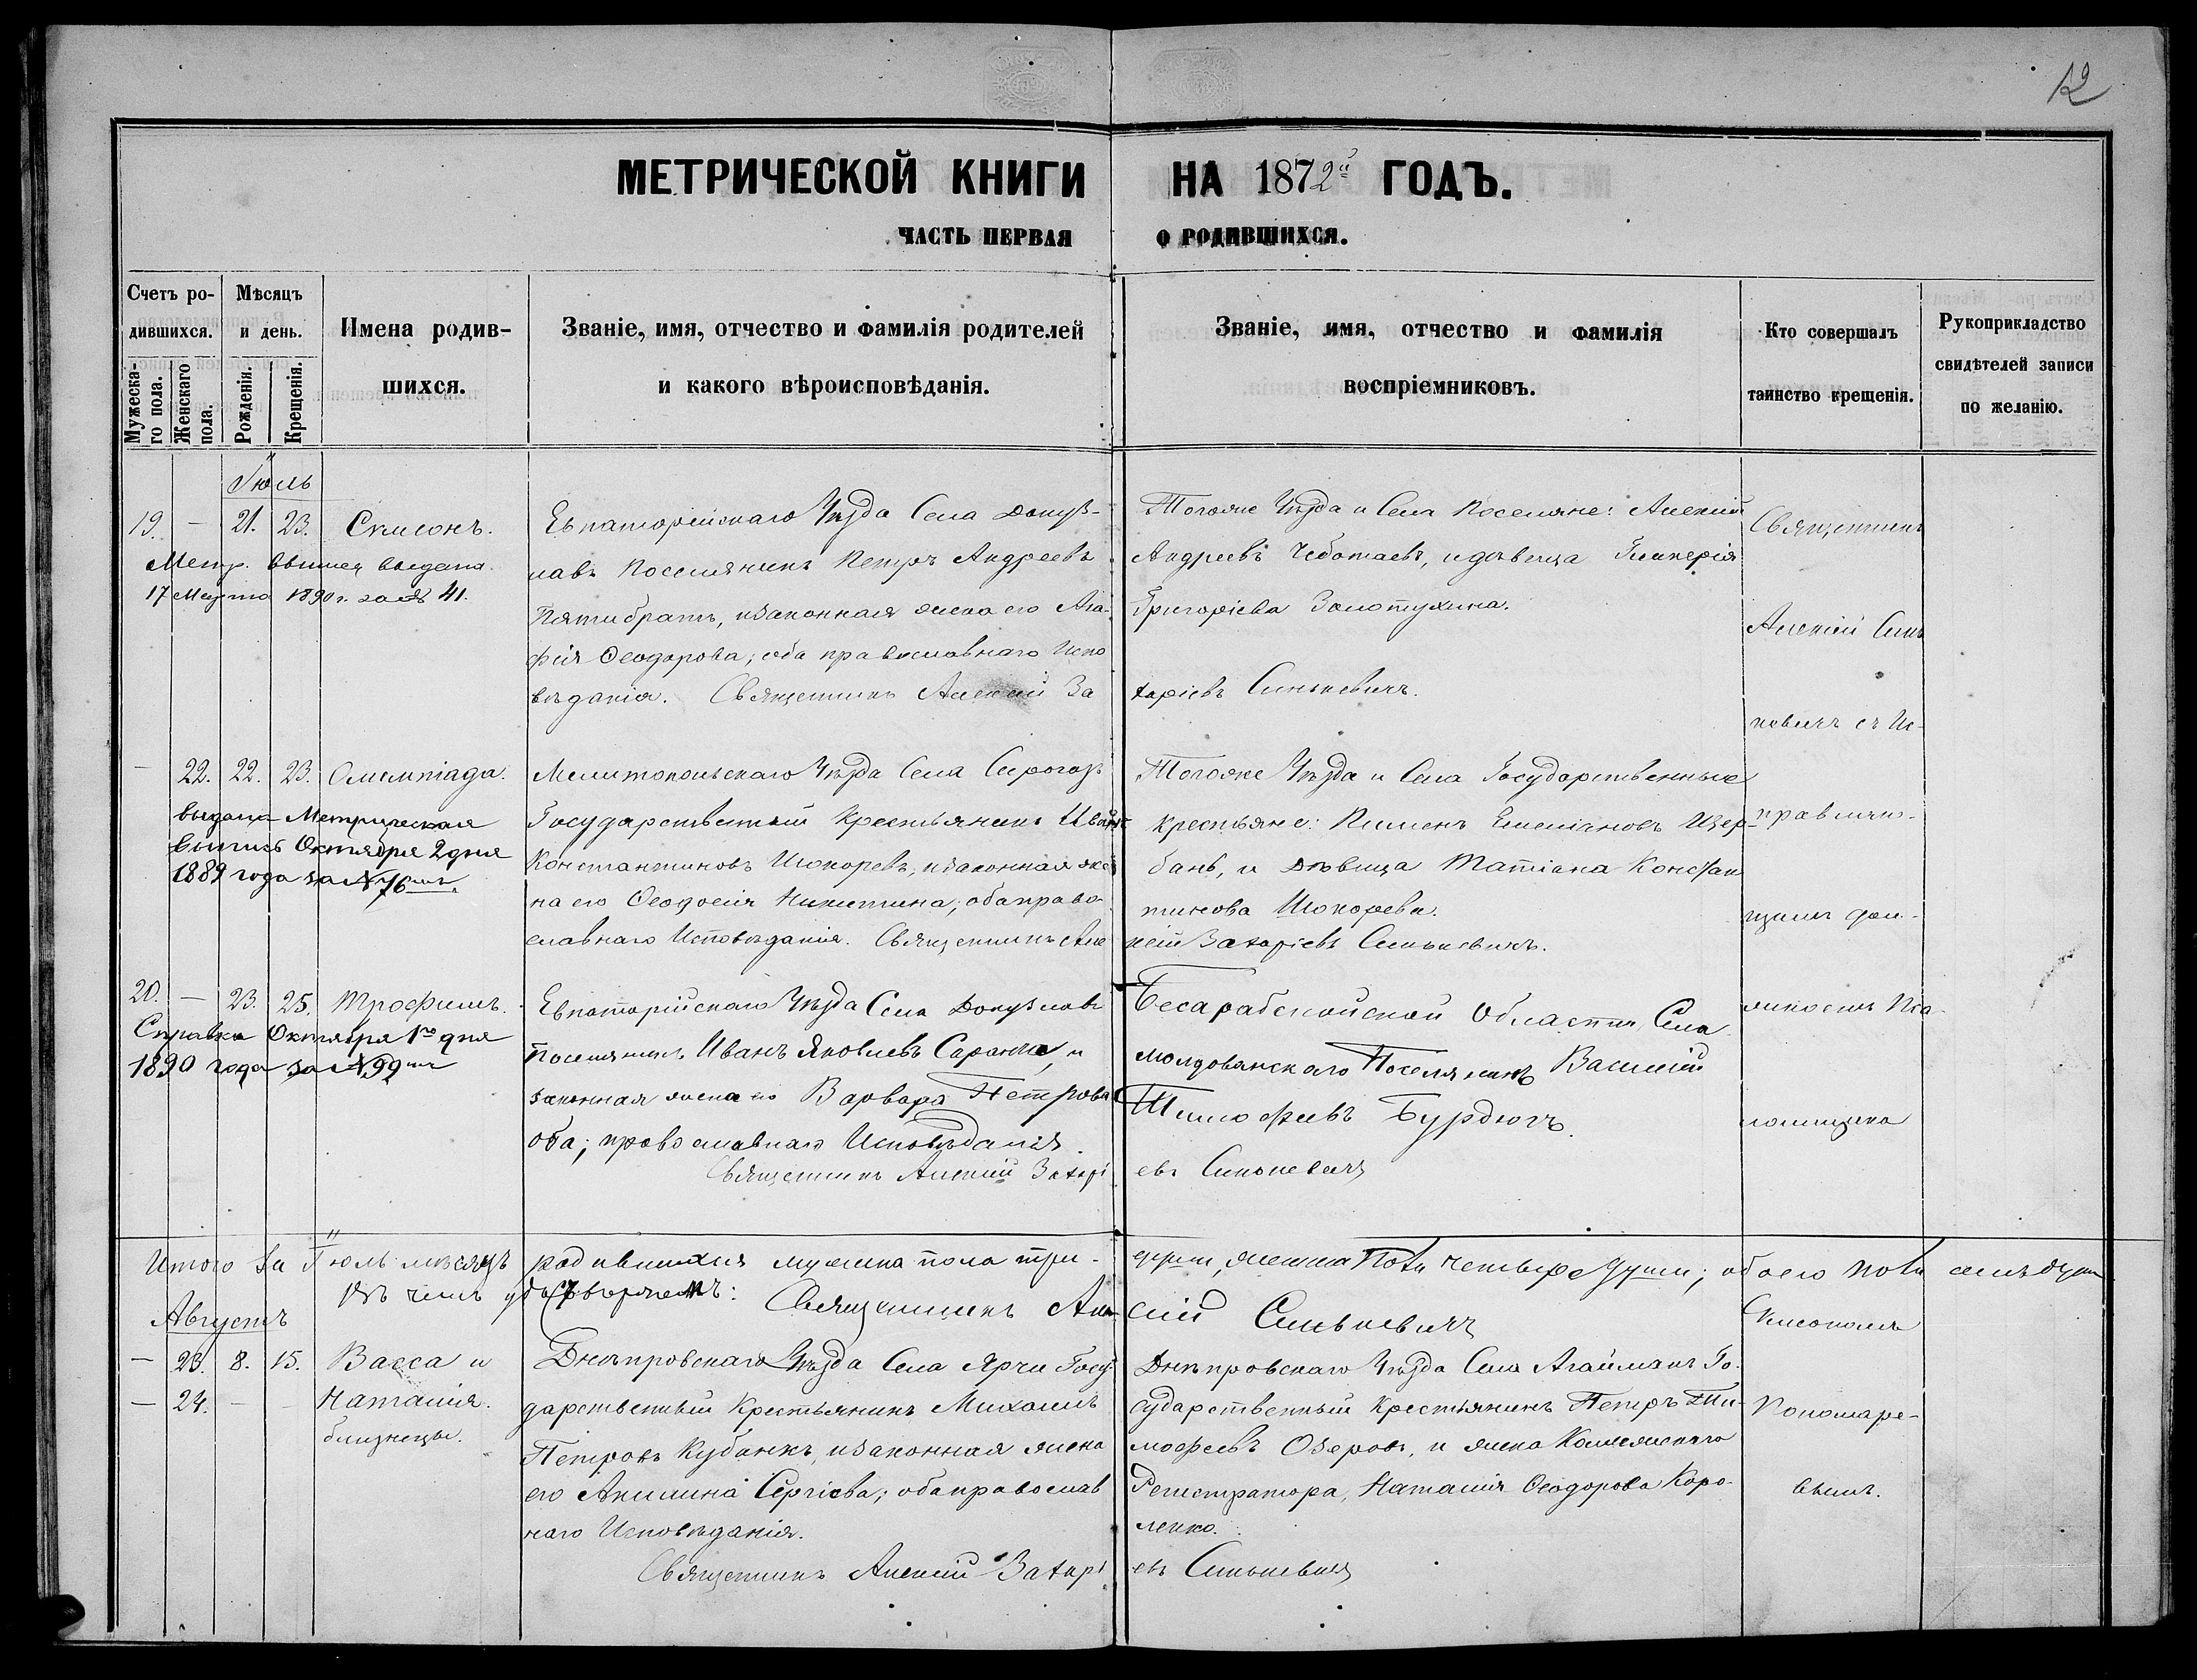 12
МЕТРИЧЕСКОЙ КНИГИ НА 1872й ГОДЪ.
ЧАСТЬ ПЕРВАЯ О РОДИВШИХСЯ.
Счетъ ро-
дившихся.
Мужеска-
го пола.
Женскаго
пола.
Мѣсяцъ
и день.
Рожденія.
Крещенія.
Имена родив-
шихся.
Званіе, имя, отчество и фамилія родителей
и какого вѣроисповѣданія.
Званіе, имя, отчество и фамилія
воспріемниковъ.
Кто совершалъ
таинство крещенія.
Рукоприкладство
свидѣтелей записи
по желанію.
Іюль
19. — 21. 23. Симеонъ.
Метр. выпись выдана
17 Марта 1890 г. за № 41.
Евпаторійскаго Уѣзда Села Докуз-
лавъ Поселянинъ Петръ Андреевъ
Пятибратъ, и законная жена его Ага-
фія Ѳеодорова; оба православнаго Испо
вѣданія. Священникъ Алексій За
Тогоже Уѣзда и Села Поселяне: Алексій
Андреевъ Чеботаевъ, и дѣвица Гликерія
Григоріева Золотухина.
харіевъ Синькевичъ.
Священникъ
Алексій Синь
кевичъ съ Ис-
правляю-
щимъ дол-
жность Пса-
ломщика
— 22. 22. 23. Олимпіада.
Выдана Метрическая
выпись Октября 2 дня
1889 года за № 76мъ.
Мелитопольскаго Уѣзда Села Сирогозъ
Государственный Крестьянинъ Иванъ
Константиновъ Шокоревъ, и законная же
на его Ѳеодосія Никитина; оба право
славнаго Исповѣданія. Священникъ Але
Тогоже Уѣзда и Села Государственные
крестьяне: Пименъ Емеліановъ Щер-
бань, и дѣвица Татіана Констан
тинова Шокорева.
ксій Захаріевъ Синькевичъ.
20. — 23. 25. Трофимъ.
Справка Октября 1го дня
1890 года за № 99мъ
Евпаторійскаго Уѣзда Села Докузлавъ
Поселянинъ Иванъ Яковлевъ Саранча, и
законная жена его Варвара Петрова
оба; православнаго Исповѣданія.
Священникъ Алексій Захарі
Бесарабскойской Области, Села
Молдованскаго Поселянинъ Василій
Тимофѣевъ Бурдюгъ.
евъ Синькевичъ
Итого за Іюль мѣсяцъ родившихся мужска пола три- души, женска Пола четыре души; обоего пола семь душъ
Въ чемъ удостовѣряемъ: Священникъ Але- ксій Синькевичъ
Августъ
— 23. 8. 15. Васса и
— 24. — — Наталія.
близнецы.
Днѣпровскаго Уѣзда Села Ярчи Госу-
дарственный Крестьянинъ Михаилъ
Петровъ Кубанкъ, и законная жена
его Акилина Сергіева; оба православ
наго Исповѣданія.
Священникъ Алексій Захарі
Днѣпровскаго Уѣзда Села Агайманъ Го-
сударственный Крестьянинъ Петръ Ти-
мофеевъ Озеровъ, и жена Коллежскаго
Регистратора, Наталія Ѳеодорова Коро-
ленко.
евъ Синькевичъ
Пономаре-
вымъ.